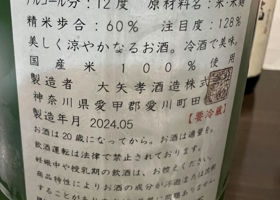 アルコール分：12度 原材料名：米・米麹
精米歩合：60% 注目度：128%
美しく涼やかなるお酒。冷酒で美味。
国産米 100% 使用
製造者 大矢孝酒造株式
神奈川県愛甲郡愛川町田
製造年月 2024.05 【要冷蔵】
お酒は20歳になってから。お酒は適量を。
飲酒運転は法律で禁止されております。
妊娠中や授乳期の飲酒は、お控えください。
商品特性によりお酒の成分が
することがあり